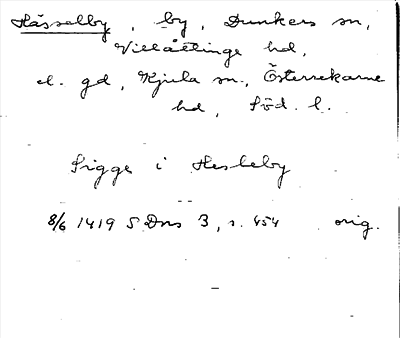 Hässelby, by, Dunkers sn,
Villåttinge hd,
el. gd, Kjula sn., Österrekarne
hd, Söd. l.
Sigge i Hesleby
8/6 1419 SDns 3, s. 454 orig.